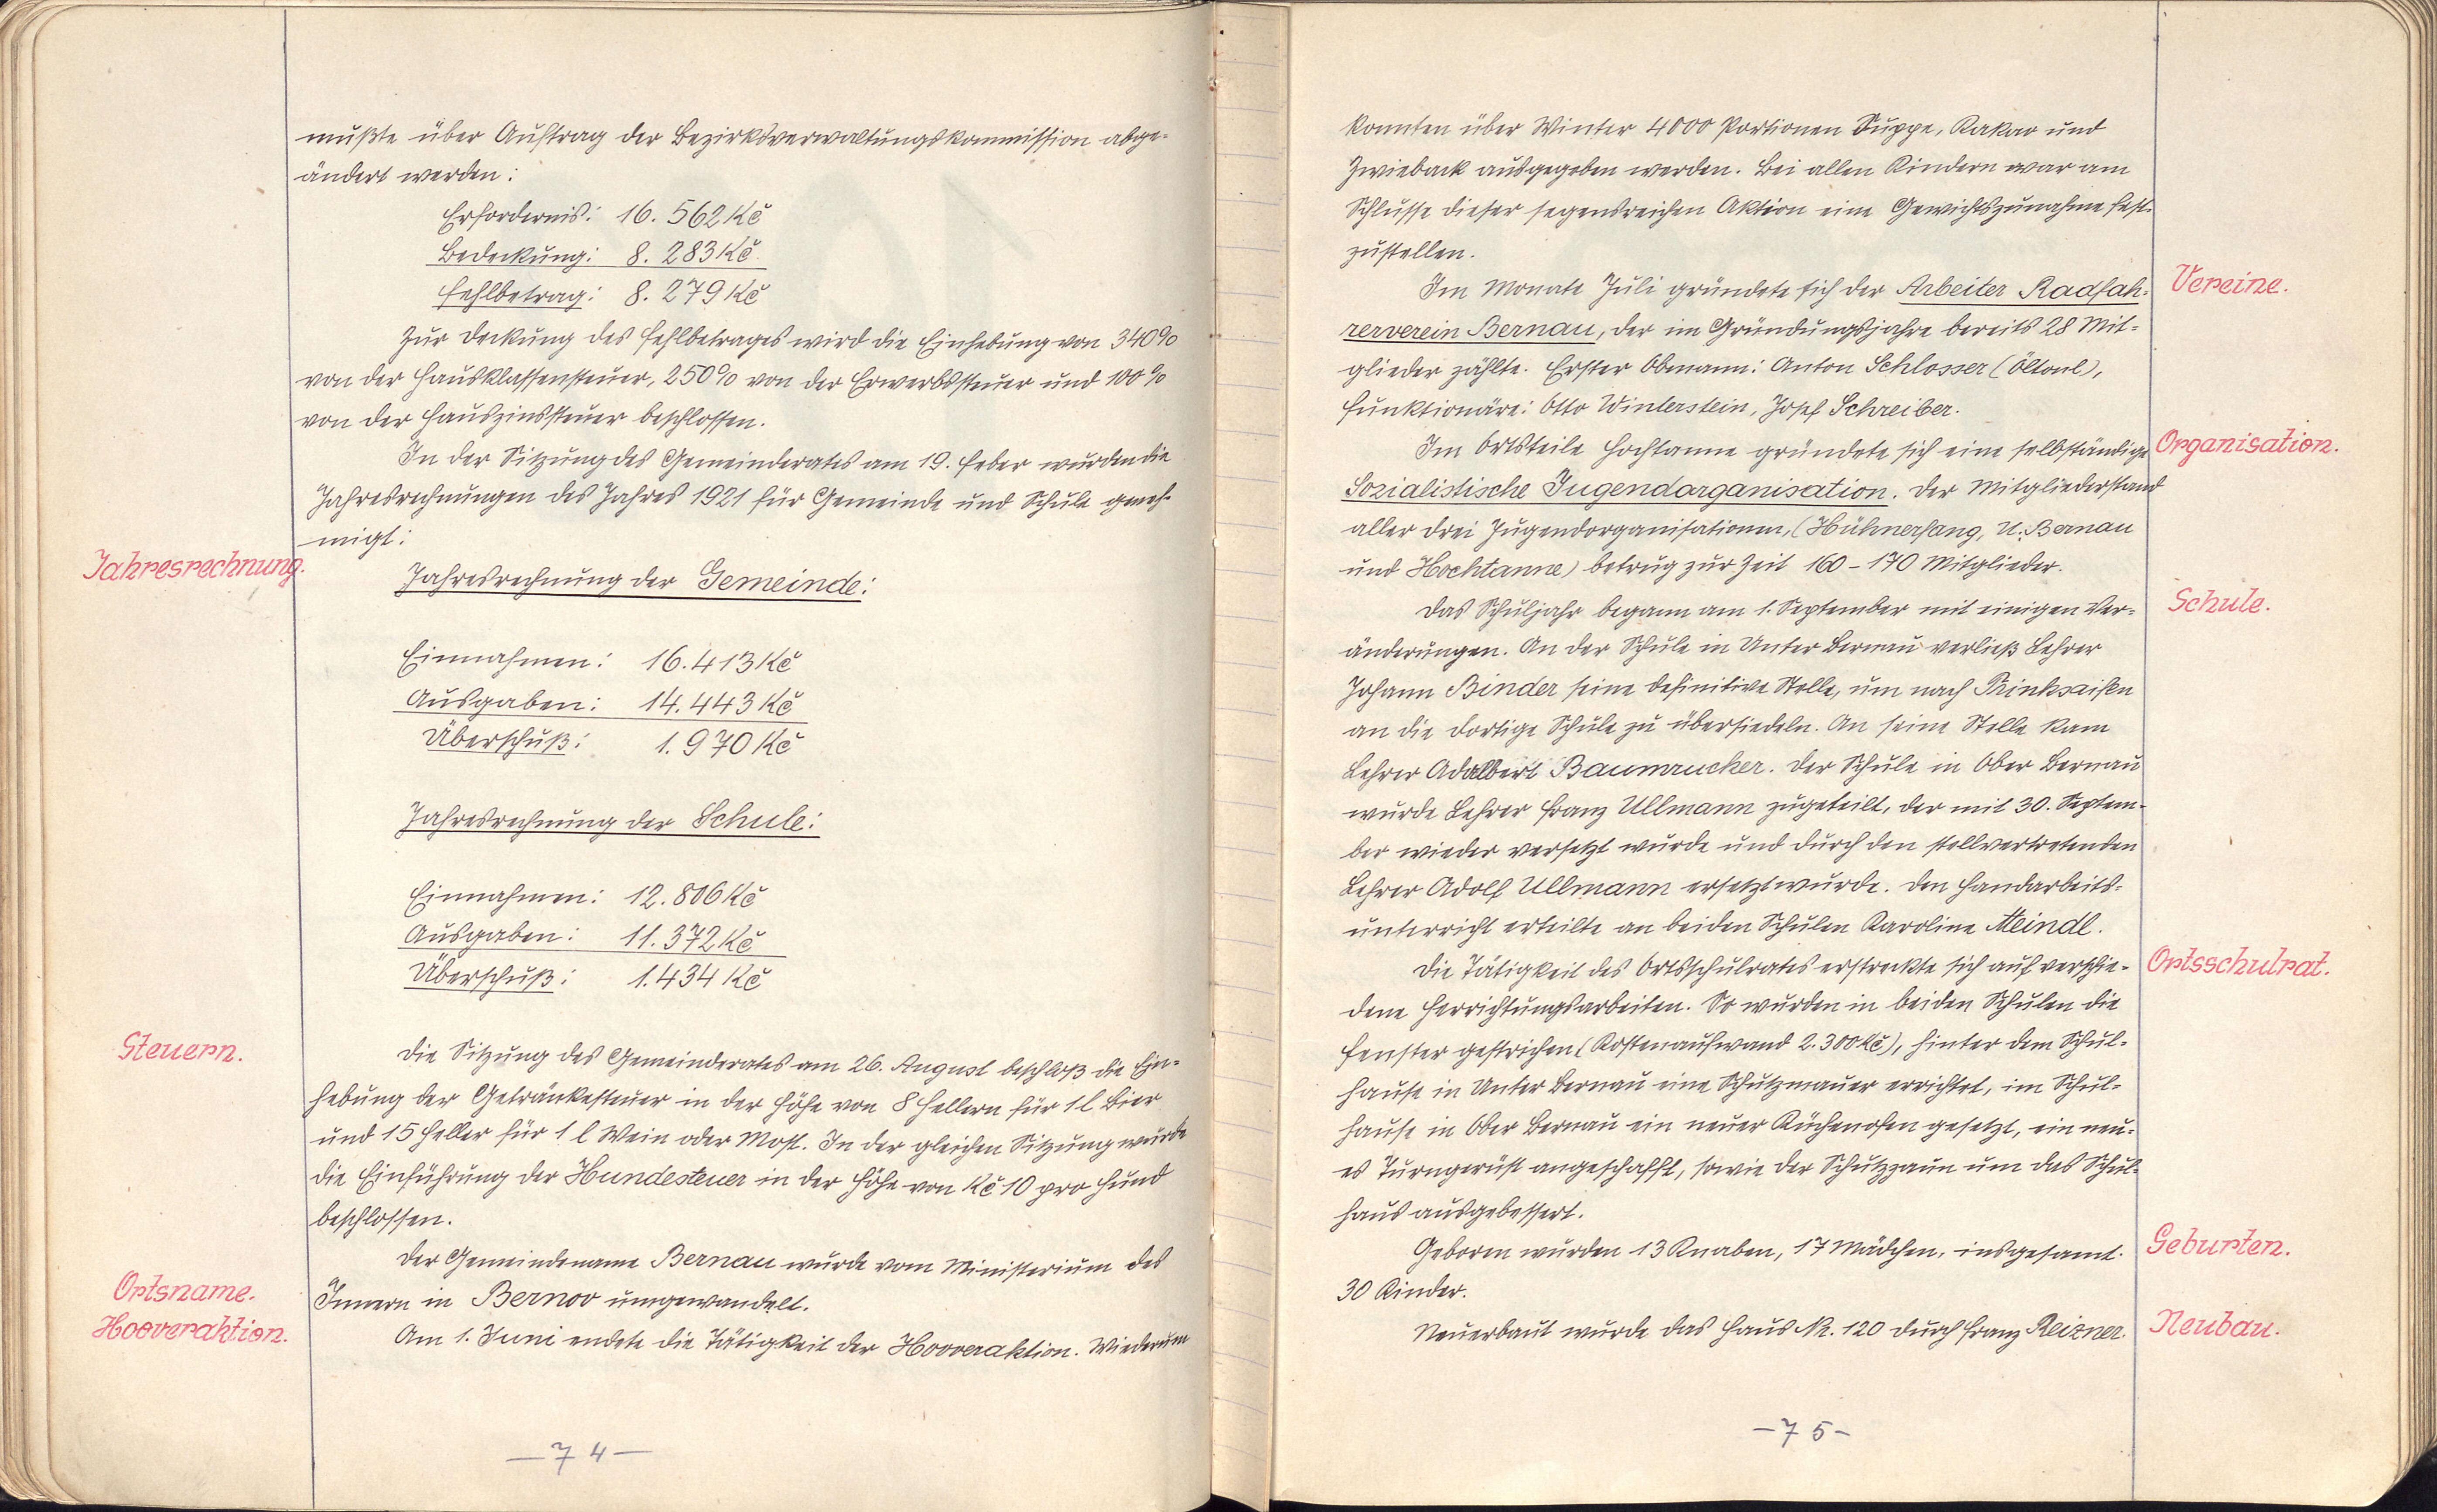 mußte über Auftrag der Bezirksverwaltungskommission abge-
ändert werden:
Erfordernis: 16.562 Kč
Bedeckung: 8.283 Kč
Fehlbetrag: 8.279 Kč
Zur Deckung des Fehlbetrages wird die Einhebung von 340%
von der Hausklassensteuer, 250% von der Erwerbssteuer und 100%
von der Hauszinssteuer beschlossen.
In der Sitzung des Gemeinderates am 19. Feber wurden die
Jahresrechnungen des Jahres 1921 für Gemeinde und Schule geneh-
migt:
Jahresrechnung.
Jahresrechnung der Gemeinde:
Einnahmen: 16.413 Kč
Ausgaben: 14.443 Kč
Überschuß: 1.970 Kč
Jahresrechnung der Schule:
Einnahmen: 12.806 Kč
Ausgaben: 11.372 Kč
Überschuß: 1.434 Kč
Steuern.
Die Sitzung des Gemeinderates am 26. August beschloß die Ein-
hebung der Getränkesteuer in der Höhe von 8 Hellern für 1 l Bier
und 15 Heller für 1 l Wein oder Most. In der gleichen Sitzung wurde
die Einführung der Hundesteuer in der Höhe von Kč 10 pro Hund
beschlossen.
Der Gemeindename Bernau wurde vom Ministerium des
Ortsname.
Innern in Bernov umgewandelt.
Hooveraktion.
Am 1. Juni endete die Tätigkeit der Hooveraktion. Wiederum
-74-
konnten über Winter 4000 Portionen Suppe, Kakao und
Zwieback ausgegeben werden. Bei allen Kindern war am
Schlusse dieser segensreichen Aktion eine Gewichtszunahme fest-
zustellen.
Vereine.
Im Monate Juli gründete sich der Arbeiter Radfah-
rerverein Bernau, der im Gründungsjahre bereits 28 Mit-
glieder zählte. Erster Obmann: Anton Schlosser (Öltonl),
Funktionäre: Otto Winterstein, Josef Schreiber.
Im Ortsteile Hochtanne gründete sich eine selbständige
Organisation.
Sozialistische Jugendorganisation. Der Mitgliederstand
aller drei Jugendorganisationen, (Hühnerfang, U. Bernau
und Hochtanne) betrug zur Zeit 160-170 Mitglieder.
Schule.
Das Schuljahr begann am 1. September mit einigen Ver-
änderungen. An der Schule in Unter Bernau verließ Lehrer
Johann Binder seine definitive Stelle, um nach Trinksaifen
an die dortige Schule zu übersiedeln. An seine Stelle kam
Lehrer Adalbert Baumrucker. Der Schule in Ober Bernau
wurde Lehrer Franz Ullmann zugeteilt, der mit 30. Septem-
ber wieder versetzt wurde und durch den stellvertretenden
Lehrer Adolf Ullmann ersetzt wurde. Den Handarbeits-
unterricht erteilte an beiden Schulen Karoline Meindl.
Ortsschulrat.
Die Tätigkeit des Ortsschulrates erstreckte sich auf verschie-
dene Herrichtungsarbeiten. So wurden in beiden Schulen die
Fenster gestrichen (Kostenaufwand 2.300 Kč), hinter dem Schul-
hause in Unter Bernau eine Schutzmauer errichtet, im Schul-
hause in Ober Bernau ein neuer Küchenofen gesetzt, ein neu-
es Turngerüst angeschafft, sowie der Schutzzaun um das Schul-
haus ausgebessert.
Geburten.
Geboren wurden 13 Knaben, 17 Mädchen, insgesamt
30 Kinder.
Neubau.
Neuerbaut wurde das Haus Nr. 120 durch Franz Reizner.
-75-